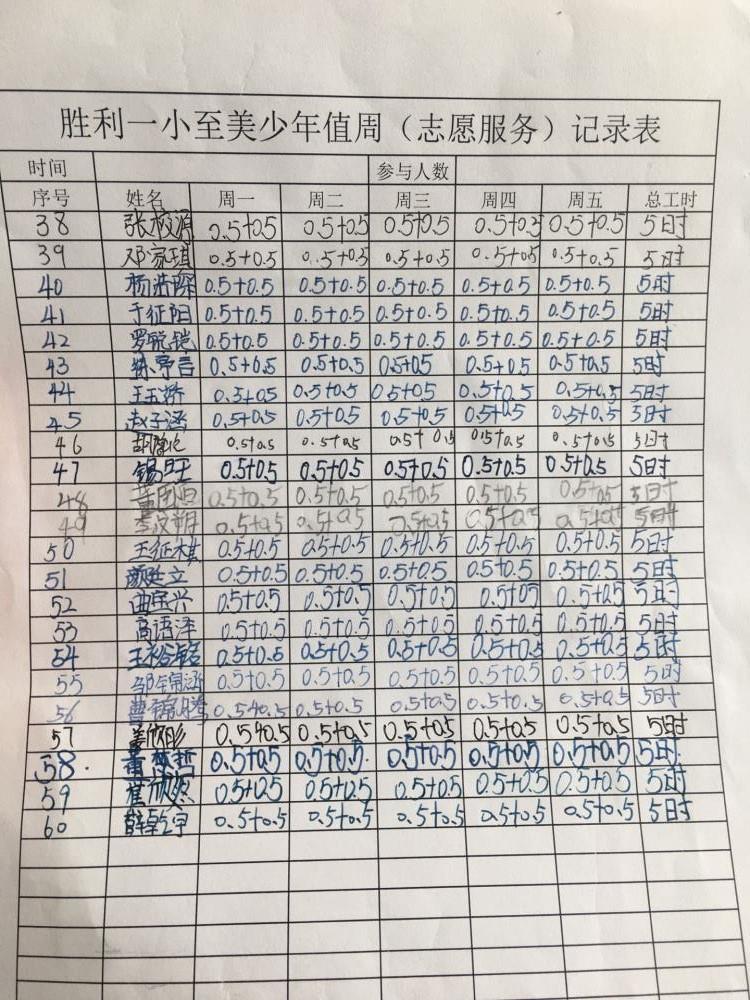 胜利一小至美少年值周（志愿服务）记录表
时间 参与人数
序号 姓名 周一 周二 周三 周四 周五 总工时
38 张校源 0.5+0.5 0.5+0.5 0.5+0.5 0.5+0.5 0.5+0.5 5时
39 邓家琪 0.5+0.5 0.5+0.5 0.5+0.5 0.5+0.5 0.5+0.5 5时
40 杨浩琛 0.5+0.5 0.5+0.5 0.5+0.5 0.5+0.5 0.5+0.5 5时
41 于征阳 0.5+0.5 0.5+0.5 0.5+0.5 0.5+0.5 0.5+0.5 5时
42 罗晓铠 0.5+0.5 0.5+0.5 0.5+0.5 0.5+0.5 0.5+0.5 5时
43 0.5+0.5 0.5+0.5 0.5+0.5 0.5+0.5 0.5+0.5 5时
44 王玉娇 0.5+0.5 0.5+0.5 0.5+0.5 0.5+0.5 0.5+0.5 5时
45 赵子涵 0.5+0.5 0.5+0.5 0.5+0.5 0.5+0.5 0.5+0.5 5时
46 0.5+0.5 0.5+0.5 0.5+0.5 0.5+0.5 0.5+0.5 5时
47 0.5+0.5 0.5+0.5 0.5+0.5 0.5+0.5 0.5+0.5 5时
48 0.5+0.5 0.5+0.5 0.5+0.5 0.5+0.5 0.5+0.5 5时
49 0.5+0.5 0.5+0.5 0.5+0.5 0.5+0.5 0.5+0.5 5时
50 王征棋 0.5+0.5 0.5+0.5 0.5+0.5 0.5+0.5 0.5+0.5 5时
51 颜廷立 0.5+0.5 0.5+0.5 0.5+0.5 0.5+0.5 0.5+0.5 5时
52 曲宝兴 0.5+0.5 0.5+0.5 0.5+0.5 0.5+0.5 0.5+0.5 5时
53 高语泽 0.5+0.5 0.5+0.5 0.5+0.5 0.5+0.5 0.5+0.5 5时
54 0.5+0.5 0.5+0.5 0.5+0.5 0.5+0.5 0.5+0.5 5时
55 邹锦涵 0.5+0.5 0.5+0.5 0.5+0.5 0.5+0.5 0.5+0.5 5时
56 曹锦鸿 0.5+0.5 0.5+0.5 0.5+0.5 0.5+0.5 0.5+0.5 5时
57 姜欣彤 0.5+0.5 0.5+0.5 0.5+0.5 0.5+0.5 0.5+0.5 5时
58. 0.5+0.5 0.5+0.5. 0.5+0.5 0.5+0.5 0.5+0.5 5时
59 崔欣然 0.5+0.5 0.5+0.5 0.5+0.5 0.5+0.5 0.5+0.5 5时
60 薛乾宇 0.5+0.5 0.5+0.5 0.5+0.5 0.5+0.5 0.5+0.5 5时